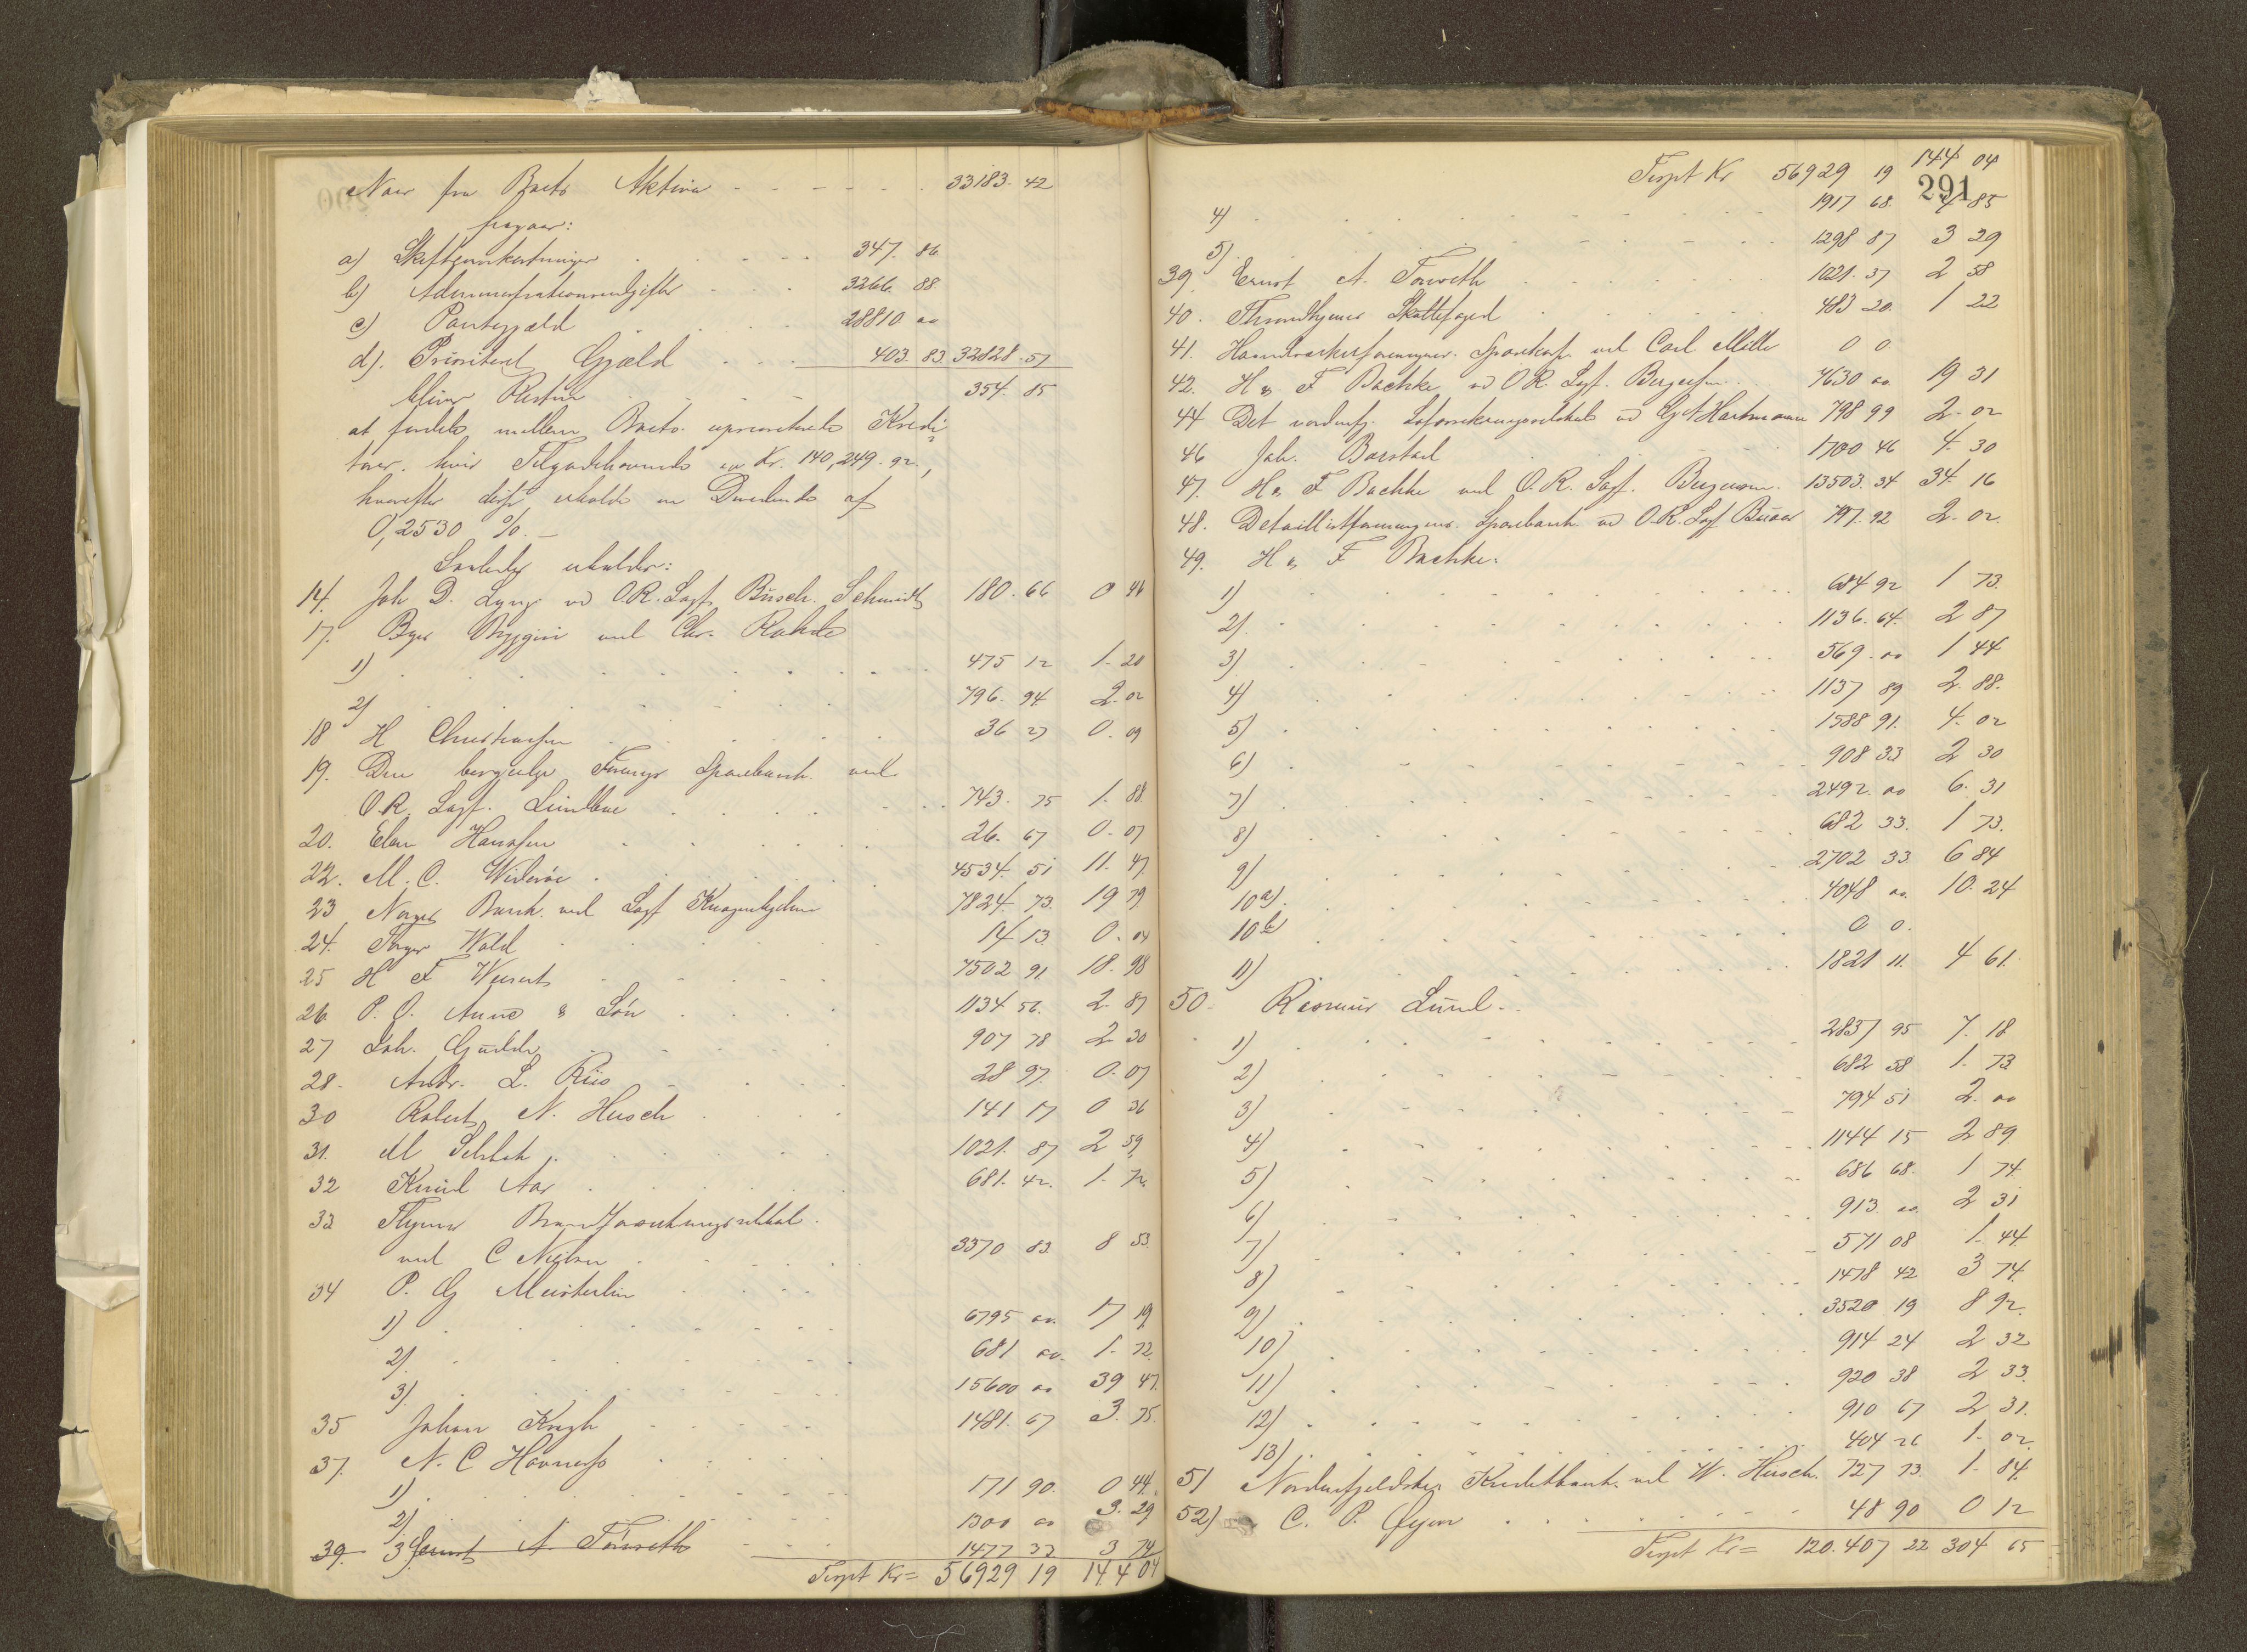 Naar fra Boets Aktiva - - - - - 33183. 42
fragaar:
a) Skifteomkostninger . . . . 347. 86
b) Administrationsudgifter - - - 3266. 88
c) Pantegjæld . . . . 28810 00
d). Prioritert Gjæld . . . 403. 83. 32828. 57
bliver Resten . . . 354. 85
at fordele mellem Boets upriorterede Kredi-
torer. hvis Tilgodehavende er Kr. 140,249. 92,
hvorefter disse erholde en Dividende af
0,2530 %. –
Saaledes erholder:
14. Joh D. Lyng ved O.R. Sagf. Busch. Schmidt 180. 66 0 46
17. Byes Byggeri ved Chr. Rohde
1) . . . . 475 12 1. 20
2) . . . . 796. 94. 2. 02
18 H Christiansen . . . . 36 27 0. 09
19. Den borgerlige Forenings Sparebank ved
O.R. Sagf. Lundboe . . . . 743. 75 1. 88.
20. Elen Hansen . . . . 26. 67 0. 07
22. M. C. Widerøe . . . . 4534. 51 11. 47.
23 Norges Bank. ved Sagf 7824. 73. 19 79
24. Wold . . . . 14 13. 0. 04
25 H F . . . . 7502 91 18. 98
26 P. O. Aune & Søn . . . . 1134 56. 2. 87
27 Joh. . . . . 907 78 2 30
28. Andr. L. Riis . . . . 28 97. 0. 07
30 Robert N. Husch . . . . 141 17 0 36
31. M . . . . 1021. 87 2 59
32 Knud Aas . . . . 681. 42. 1. 72.
33 Thjems Brandforsikringsselskab.
ved C Nielsen . . . . 3370 83. 8 53.
34 P. G Meisterlin . . . .
1) . . . . 6795 00. 17 19
2). . . . . 681 00. 1. 72.
3). . . . . 15600 00 39 47.
35 Johan Krogh . . . . 1481. 67 3. 75.
37. N. C Havnæss . . . .
1) . . . . 171 90. 0 44.
2) . . . . 1300 00 3. 29
39. 3) Ernst A. Torseth - - - 1477 32 3 74
Trspt Kr= 56929 19 144 04
Trspt Kr 56929 19 144 04
291
4) . . . . 1917 68. 4 85
5) . . . . 1298 87 3 29
39. Ernst A. Torseth . . . . 1021. 37 2 58
40. Throndhjems Skattefoged . . . . 483 20. 1 22
41. Haandværkerforeningens. ved Carl Mille 0 0
42. H & F Bachke ved O.R. Sagf. Bergersen . . 7630 00. 19 31
44 Det nordenfj. ved G A Hartmann 798 99 2. 02
46 Joh. Barstad . . . . 1700 46 4. 30
47. H & F Bachke ved O.R. Sagf. Bergersen. 13503. 34 34. 16
48. Detaillistforeningens. Sparebank ved O.R. Sagf 797. 92 2. 02.
49. H & F Bachke.
1) . . . . 684 92 1 73.
2) . . . . 1136. 64. 2 87
3) . . . . 569. 00 1 44
4) . . . . 1137 89 2. 88.
5) . . . . 1588 91. 4. 02
6) . . . . 908 33 2 30
7) . . . . 2492. 00 6. 31
8) . . . . 682 33. 1 73.
9) . . . . 2702 33. 6 84
10a). . . . . 4048 00. 10. 24
10b) . . . . 0 0.
11) . . . . 1821 11. 4 61.
50. Rasmus Lund. . .
1) . . . . 2837 95 7. 18
2) . . . . 682 58 1. 73
3) . . . . 794 51 2. 00
4) . . . . 1144 15 2 89
5) . . . . 686 68. 1 74.
6) . . . . 913. 00. 2 31
7) . . . . 571 08 1. 44
8) . . . . 1478 42 3 74.
9) . . . . 3520 19 8 92.
10) . . . . 914 24 2 32
11) . . . . 920 38 2 33.
12) . . . . 910 67 2 31.
13) . . . . 404 26 1. 02
51 Nordenfjeldske Kreditbank. ved W. Husch. 727 73. 1. 84.
52) C. P. Øyen . . . . 48 90 0 12
Trspt Kr= 120.407 22 304 65